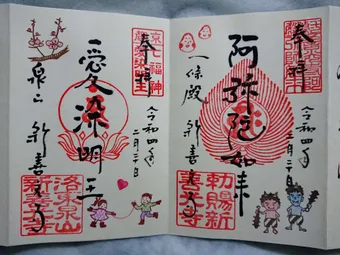 奉拝
阿弥陀如来
一條殿 新善光寺
令和四年二月二十日
勅賜新善光寺
奉拝
愛染明王
泉山 新善光寺
令和四年二月二十日
洛東泉山新善光寺